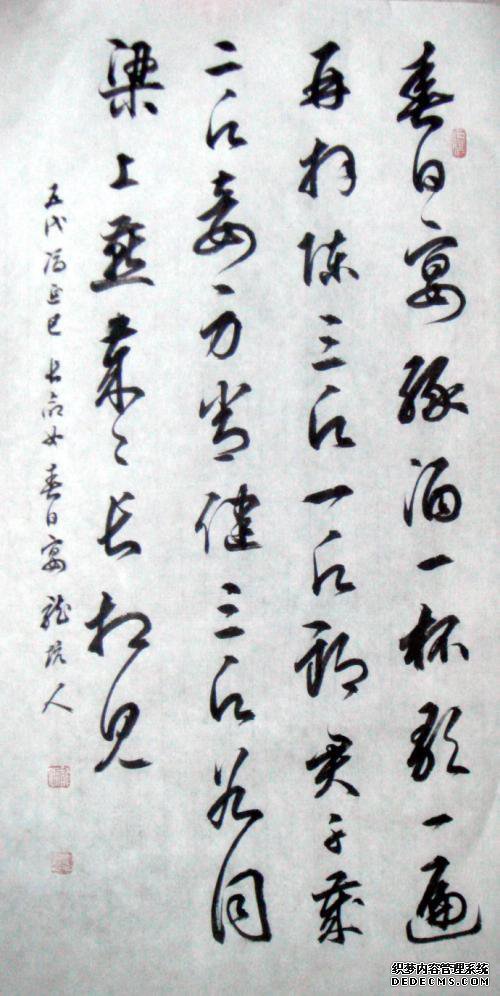 春日宴绿酒一杯歌一遍
再拜陈三愿一愿郎君千岁
二愿妾身常健三愿如同
梁上燕岁々长相见
五代冯延巳长命女春日宴龙人
织梦内容管理系统
DEDECMS.COM